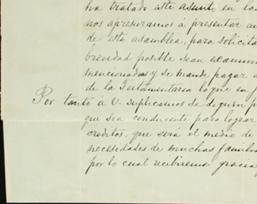 ha tratado este asunto en la
nos apresuramos á presentar an
de esta asamblea, para solicita
brevedad posible sean examin
mencionados y se mande pagar
de la Testamentaria lo que en j
Por tanto á V. suplicamos se dignen p
que sea conducente para lograr
creditos, que será el medio de
necesidades de muchas familia
por lo cual recibiremos gracia